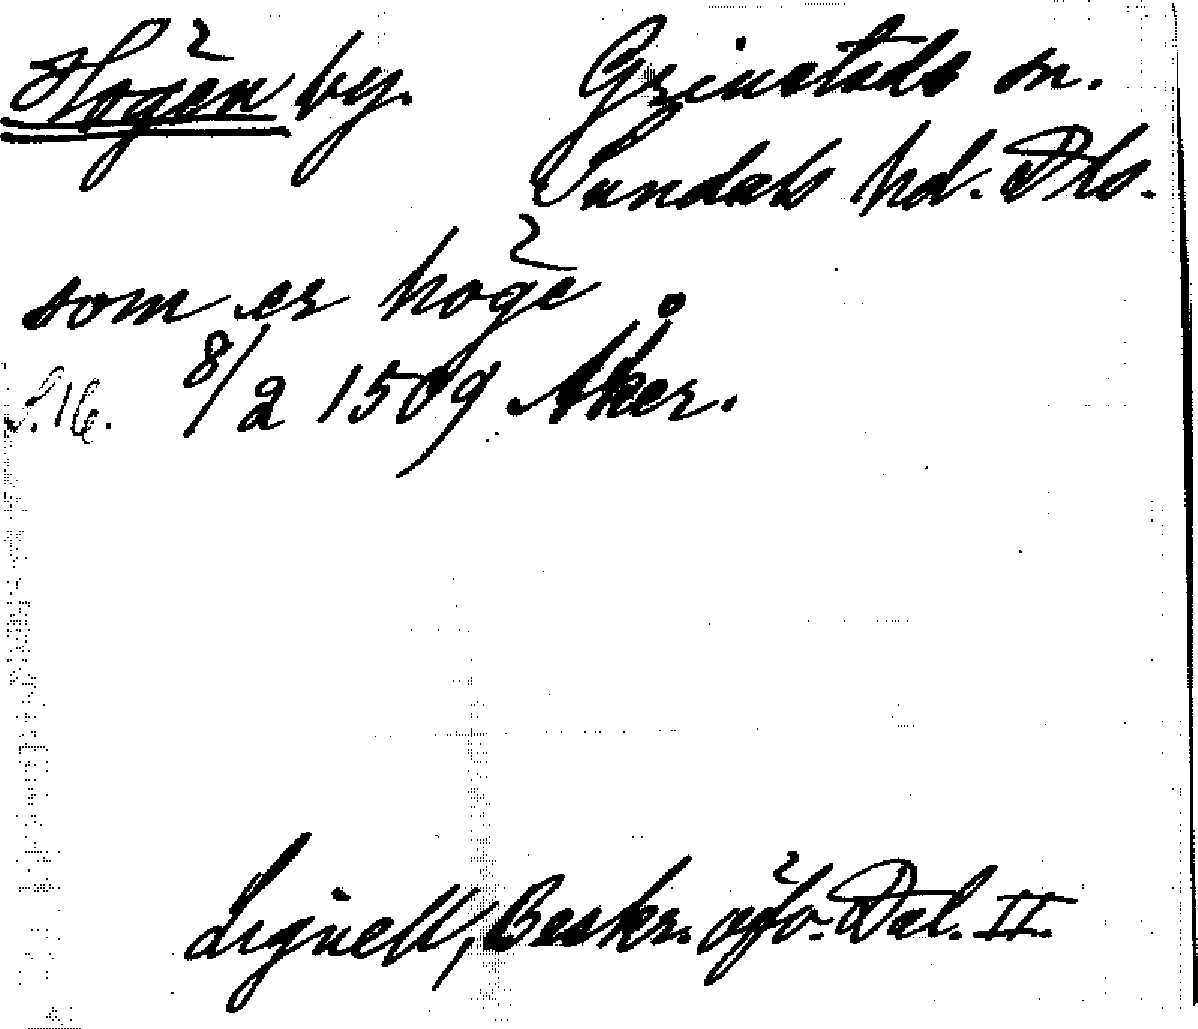 Högen by. Grinstads sn.
Sundals hd. Dls.
som er höge
S. 16. 8/2 1509 Åker.
Lignell, Beskr. öfv. Dal. II.